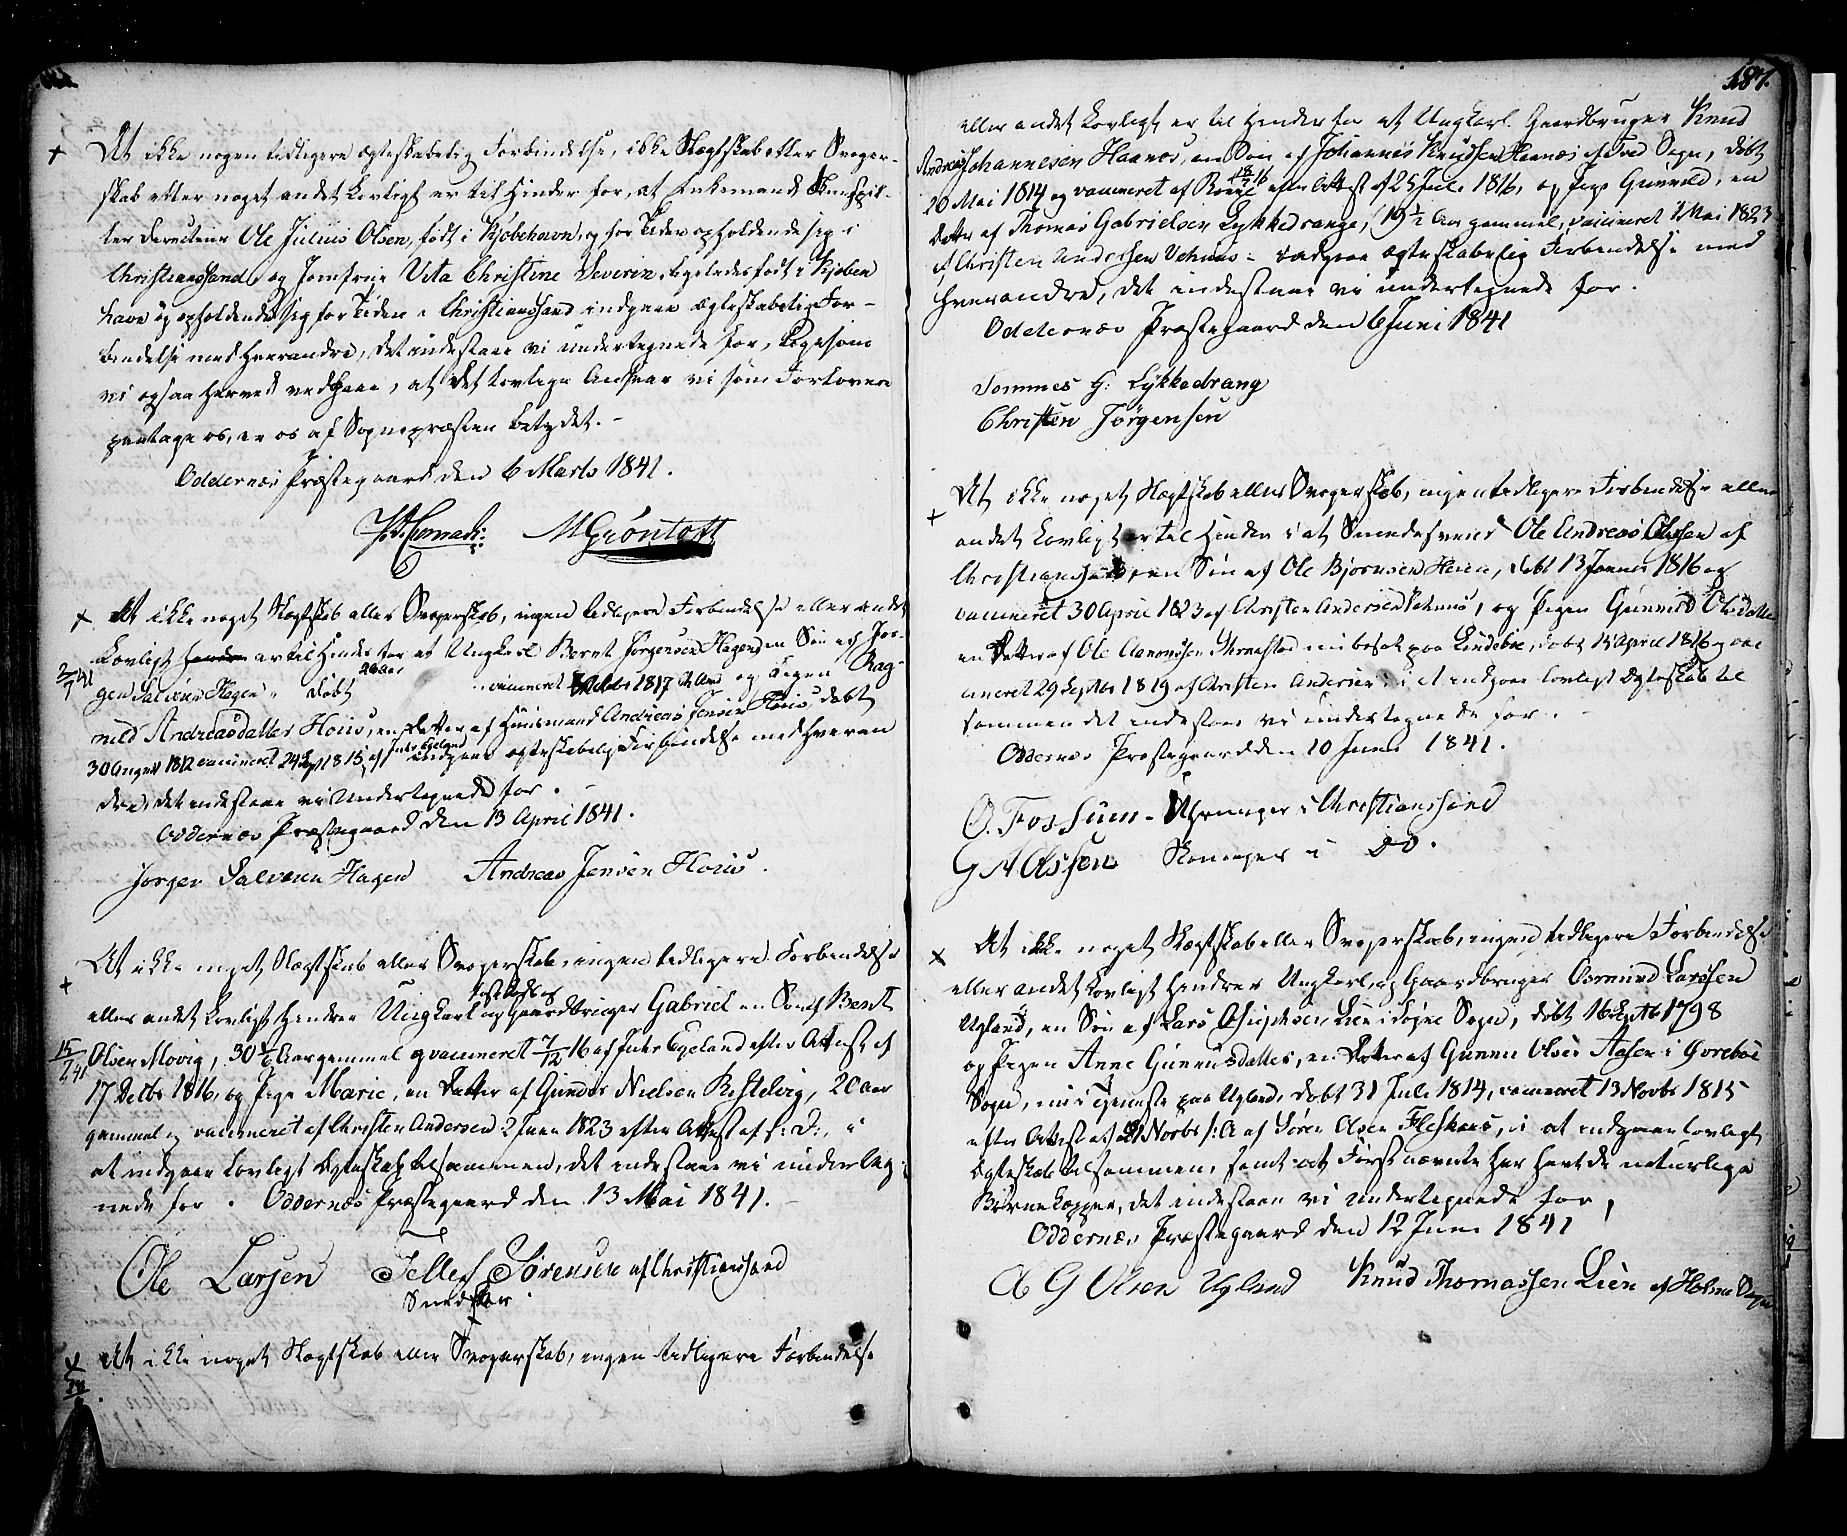 + At ikke nogen tidligere ægteskabelig Forbindelse, ikke Slægtskab eller Svoger-
skab eller noget andet Lovligt er til Hinder for, at Enkemand Skuespil-
ler Directeur Ole Julius Olsen, født i Kjøbehavn, og for Tiden opholdende sig i
Christianssand, og Jomfrue Vita Christine Severin, ligeledes født i Kjøben
havn og opholdende sig for Tiden i Christianssand indgaaer Ægteskabelig For-
bindelse med hverandre, det indestaaer vi undertegnede for, ligesom
vi ogsaa herved vedgaaer, at det lovlige Ansvar vi som Forlovere
paatage os, er os af Sognepræsten betydet. -
Oddernæs Præstegaard den 6 Marts 1841.
M Gröntoft
X At ikke noget Slægtskab eller Svogerskab, ingen tidligere Forbindelse eller andet
Lovligt er til Hinder for at Ungkarl Bernt Jörgensen Hagen en Søn af Jør-
2/7 41
gen Salvesen Hagen - døbt 26 Aar vaccineret 1817 og Pigen Rag-
nild Andreasdatter Hoiis, en Datter af Huusmand Andreas Jensen Hoiis, døbt
30 August 1812 vaccineret 24 Sept 1815 af Juhr Egeland indgaaer ægteskabelig Forbindelse med hveran
dre, det indestaaer vi Undertegnede for. -
Oddernæs Præstegaard den 13 April 1841.
Jørgen Salvesen Hagen Andreas Jensen Hoiis.
+ At ikke noget Slægtskab eller Svogerskab, ingen tidligere Forbindelse
eller andet Lovligt hindrer Ungkarl og Gaardbruger Gabriel en Søn af Berent
15/7 41 Olsen Movig, 30 1/6 Aar gammel og vaccineret 7/12 16 af Juhr Egeland efter Attest af
17 Decbr 1816, og Pige Marie, en Datter af Gunder Nielsen Kystelvig, 20 Aar
gammel og vaccineret af Christen Andersen 2 Juni 1823 efter Attest af s: D:, i
at indgaae lovligt Ægteskab tilsammen, det indestaaer vi underteg-
nede for. Oddernæs Præstegaard den 13 Mai 1841. -
Ole Larsen Tellef Sörensen af Christianssand
X At ikke noget Slægtskab eller Svogerskab, ingen tidligere Forbindelse
187.
eller andet Lovligt er til Hinder for at Ungkarl Gaardbruger Knud
Andreas Johannesen Haanæs, en Søn af Johannes Knudsen Haanæs af Tved Sogn, døbt
20 Mai 1814 og vaccineret af efter Attest af 25 Juli 1816, og Pige Gunnild, en
Datter af Thomas Gabrielsen Lykkedrange, 19 1/2 Aar gammel, vaccineret Mai 1823
af Christen Andersen Vehuus - indgaae ægteskabelig Forbindelse med
hverandre, det indestaaer vi undertegnede for.
Oddernæs Præstegaard den 6 Juni 1841
Tommes G: Lykkedrang
Christen Törgensen
+ At ikke noget Slægtskab eller Svogerskab, ingen tidligere Forbindelse eller
andet Lovligt er til Hinder i at Smedesvend Ole Andreas Olsen af
Christianssand, en Søn af Ole Bjørnsen, døbt 13 Januar 1816 og
vaccineret 30 April 1823 af Christen Andersen Vehuus, og Pigen Gunnild Olsdatter
en Datter af Ole Aanonsen nu bosat paa Lindebøe, døbt 15 April 1816 og vac
cineret 29 Septbr 1819 af Christen Andersen, i at indgaae lovligt Ægteskab til
sammen det indestaaer vi undertegnede for.
Oddernæs Præstegaard den 10 Juni 1841.
O. Fossum - i Christianssand
G A Olssen i Do.
X At ikke noget Slægtskab eller Svogerskab, ingen tidligere Forbindelse
eller andet Lovligt hindrer Ungkarl og Gaardbruger Osmund Larssen
Ugland, en Søn af Lars Lien i Søgne Sogn, døbt 16 Septbr 1798
og Pigen Anne Gunnusdatter, en Datter af Gunnu Olsen Aasen i Øvrebøe
Sogn, nu i Tjeneste paa Ugland, døbt 31 Juli 1814, vaccineret 13 Novbr 1815
efter Attest af 21 Novbr s: A af Sören Olsen Fleskaas, i at indgaae lovligt
Ægteskab tilsammen, samt at Førstnævnte har havt de naturlige
Børnekopper, det indestaaer vi undertegnede for,
Oddernæs Præstegaard den 12 Juni 1841
G Olsen Ugland Knud Thomassen Lien af Holme Sogn